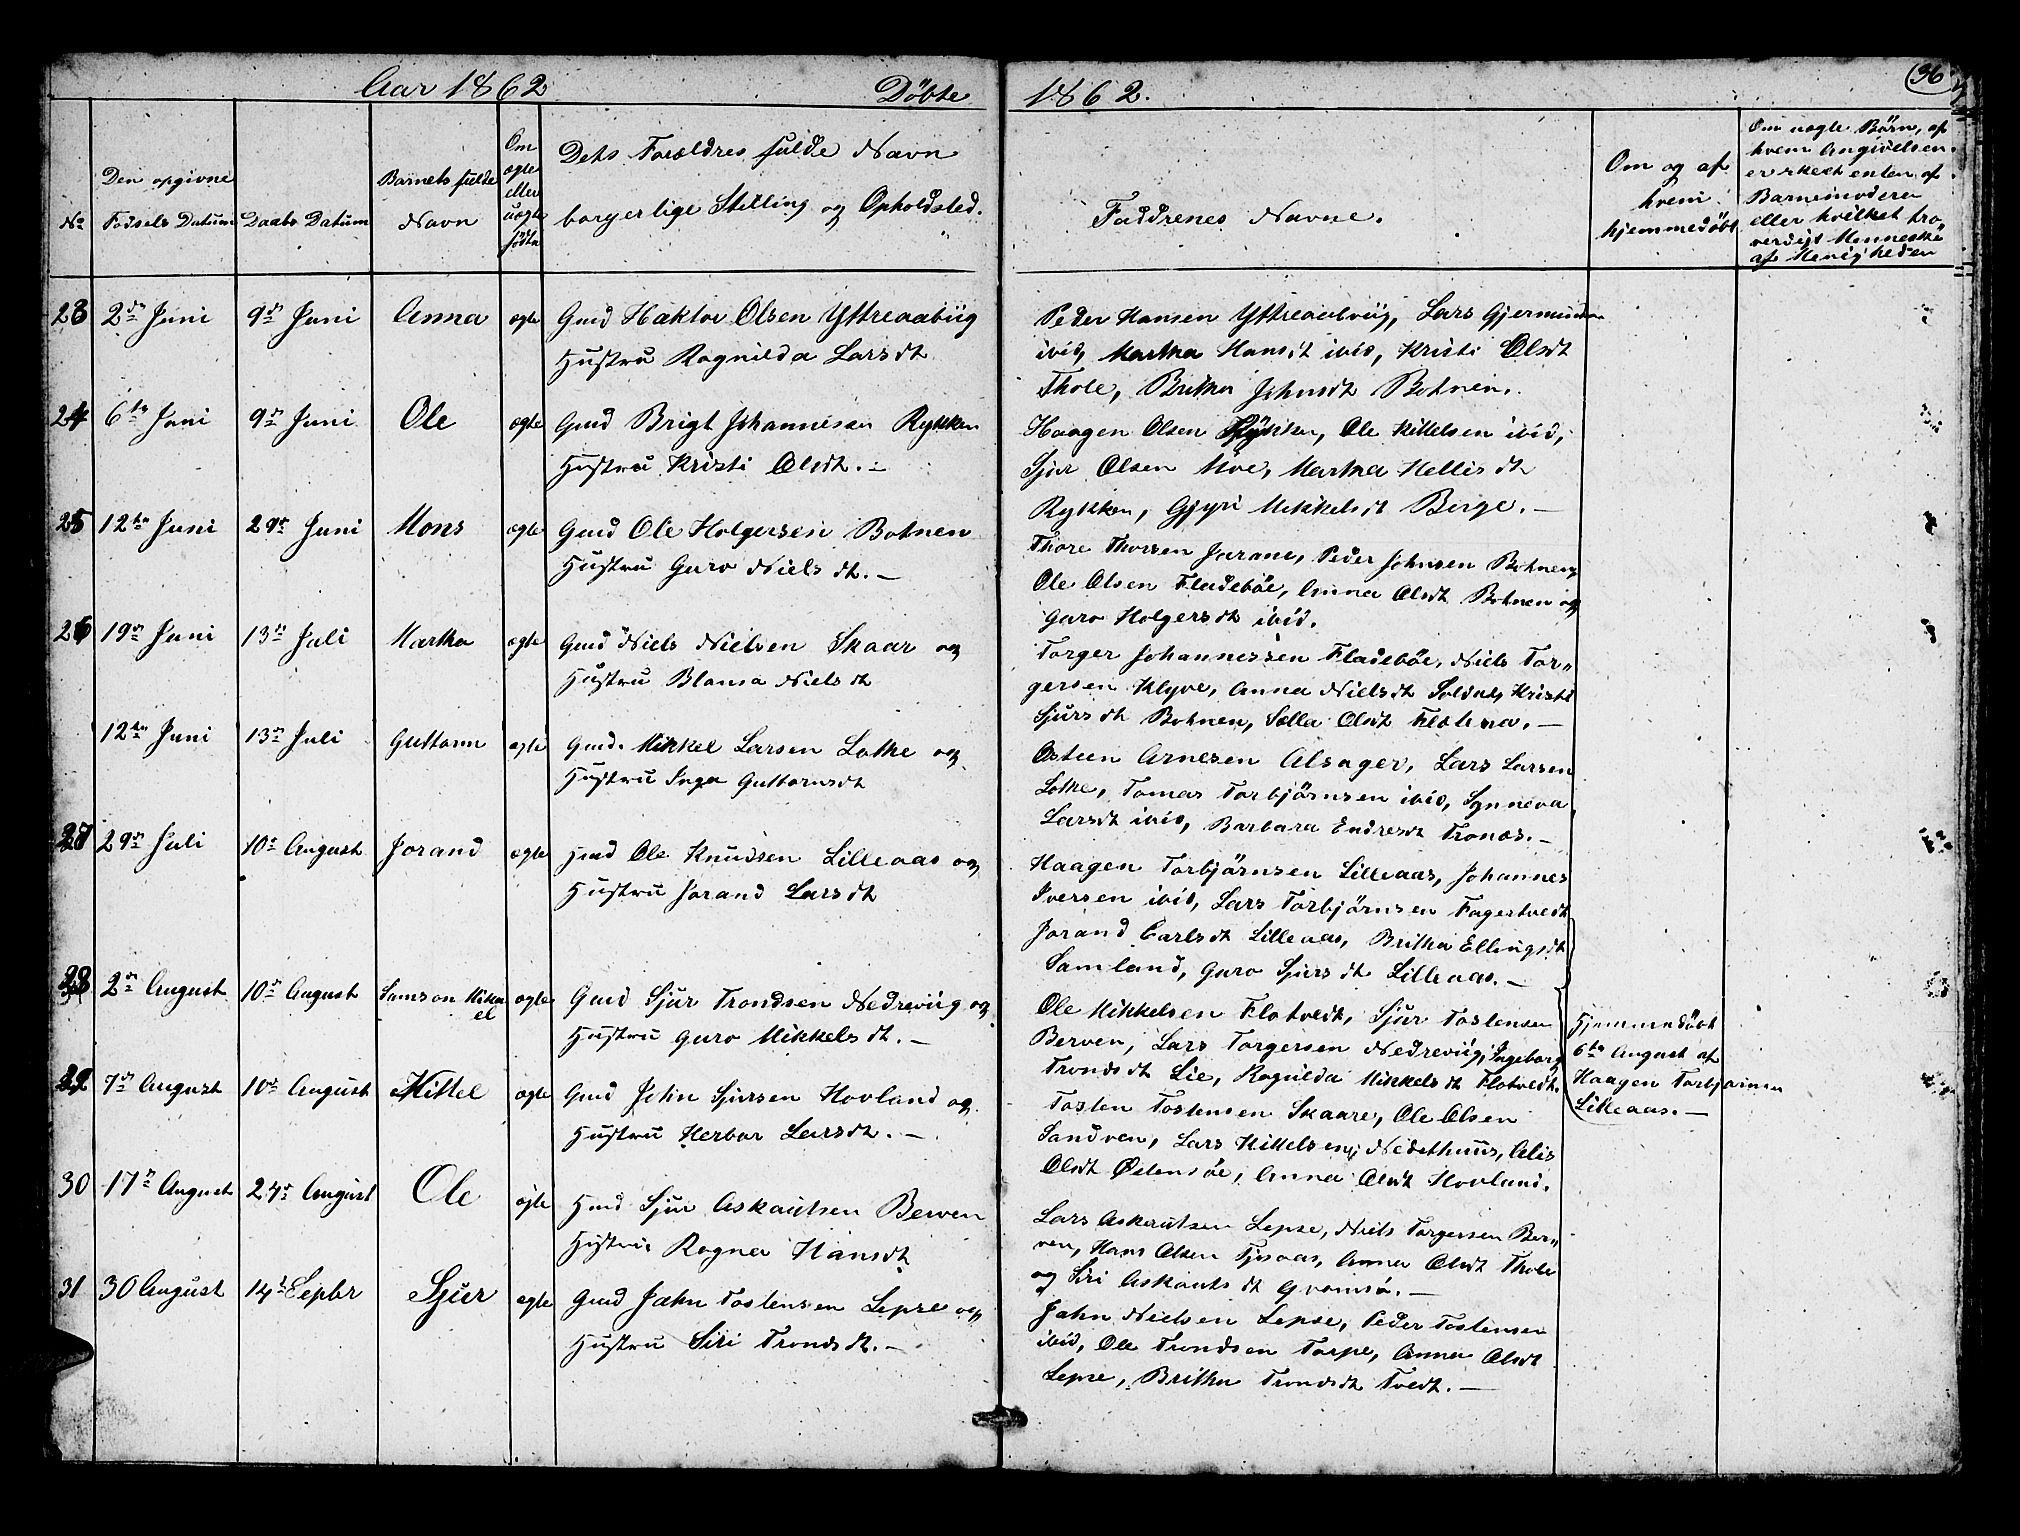 Aar 1862 Döbte 1862. 36
No
Den opgivne
Fødsels Datum
Daabs Datum
Barnets fulde
Navn
Om
ægte
eller
uægte
født
Dets Forældres fulde Navn
borgerlige Stilling og Opholdsted.
Faddrenes Navne.
Om og af
hvem
hjemmedöbt
Om uægte Börn, af
hvem Angivelsen
er skeet enten af
Barnemoderen
eller hvilket tro
verdigt Menneske
af Menigheden
23 2den Juni 9de Juni Anna ægte Gmd Haktor Olsen Yttreaabüg
Hustru Ragnilda Larsdt
Peder Hansen Yttreaabvüg, Lars Gjermundsen
ibid, Martha Hansdt ibid, Kristi Olsdt
Thole, Britha Johnsdt Botnen.
24 6te Juni 9de Juni Ole ægte Gmd Brigt Johannesen Rykken
Hustru Kristi Olsdt. -
Haagen Olsen Rykken, Ole Kittelsen ibid,
Sjur Olsen Moe, Martha Hellisdt
Rykken, Gjyri Mikkelsdt Berge. -
25 12te Juni 29de Juni Mons ægte Gmd Ole Holgersen Botnen
Hustru Guro Nielsdt. -
Thore Thorsen Jarane, Peder Johnsen Botnen,
Ole Olsen Fladeböe, Anna Olsdt Botnen og
Guro Holgersdt ibid.
26 19de Juni 13de Juli Martha ægte Gmd Niels Nielsen Skaar og
Hustru Blansa Nielsdt
Torger Johannessen Fladeböe, Niels Tor-
gersen Klyve, Anna Nielsdt Soldal, Kristi
Sjursdt Botnen, Sella Olsdt
12te Juni 13de Juli Guttorm ægte Gmd. Mikkel Larsen Lothe og
Hustru Inga Guttormsdt
Osteen Arnesen Alsager, Lars Larsen
Lothe, Tomas Torbjörnsen ibid, Synneva
Larsdt ibid, Barbara Endresdt Tronæs. -
27 29de Juli 10de August Jorand ægte Gmd Ole Knudsen Lilleaas og
Hustru Jorand Larsdt
Haagen Torbjörnsen Lilleaas, Johannes
Iversen ibid, Lars Torbjörnsen Fagertvedt
Jorand Carlsdt Lilleaas, Britha Ellingsdt
Samland, Guro Sjursdt Lilleaas. -
28 2den August 10de August Samson Mikka
el ægte Gmd Sjur Trondsen Nedrevüg og
Hustru Guro Mikkelsdt. -
Ole Mikkelsen Flotvedt, Sjur Tostensen
Berven, Lars Torgersen Nedrevüg, Ingeborg
Trondsdt Lie, Ragnilda Mikkelsdt Flotvedt.
Hjemmedöbt
6te August af
Haagen Torbjörnsen
Lilleaas. -
29 7de August 10de August Kittel ægte Gmd John Sjursen Hovland og
Hustru Herbor Larsdt. -
Tosten Tostensen Skaare, Ole Olsen
Sandven, Lars Kittelsen, Nedethuus, Alis
Olsdt Östensöe, Anna Olsdt Hovland.
30 17de August 24de August Ole ægte Gmd Sjur Askautsen Berven
Hustru Ragna Hansdt
Lars Askautsen Lepse, Niels Torgersen Ber-
ven, Hans Olsen Tjosaas, Anna Olsdt Thole
og Siri Askautsdt
31 30 August 14de Septbr Sjur ægte Gmd Jahn Tostensen Lepse og
Hustru Siri Trondsdt. -
Jahn Nielsen Lepse, Peder Tostensen
ibid, Ole Trondsen Torpe, Anna Olsdt
Lepse, Britha Trondsdt Tvedt. -